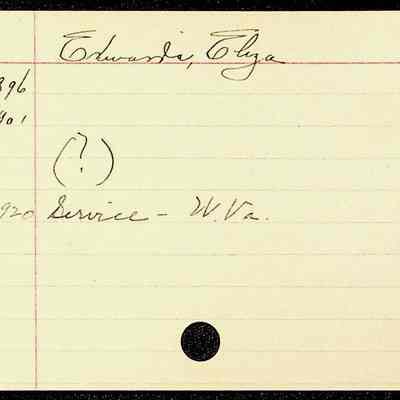 Edwards, Eliza
896
901
(?)
920 Service - W. Va.